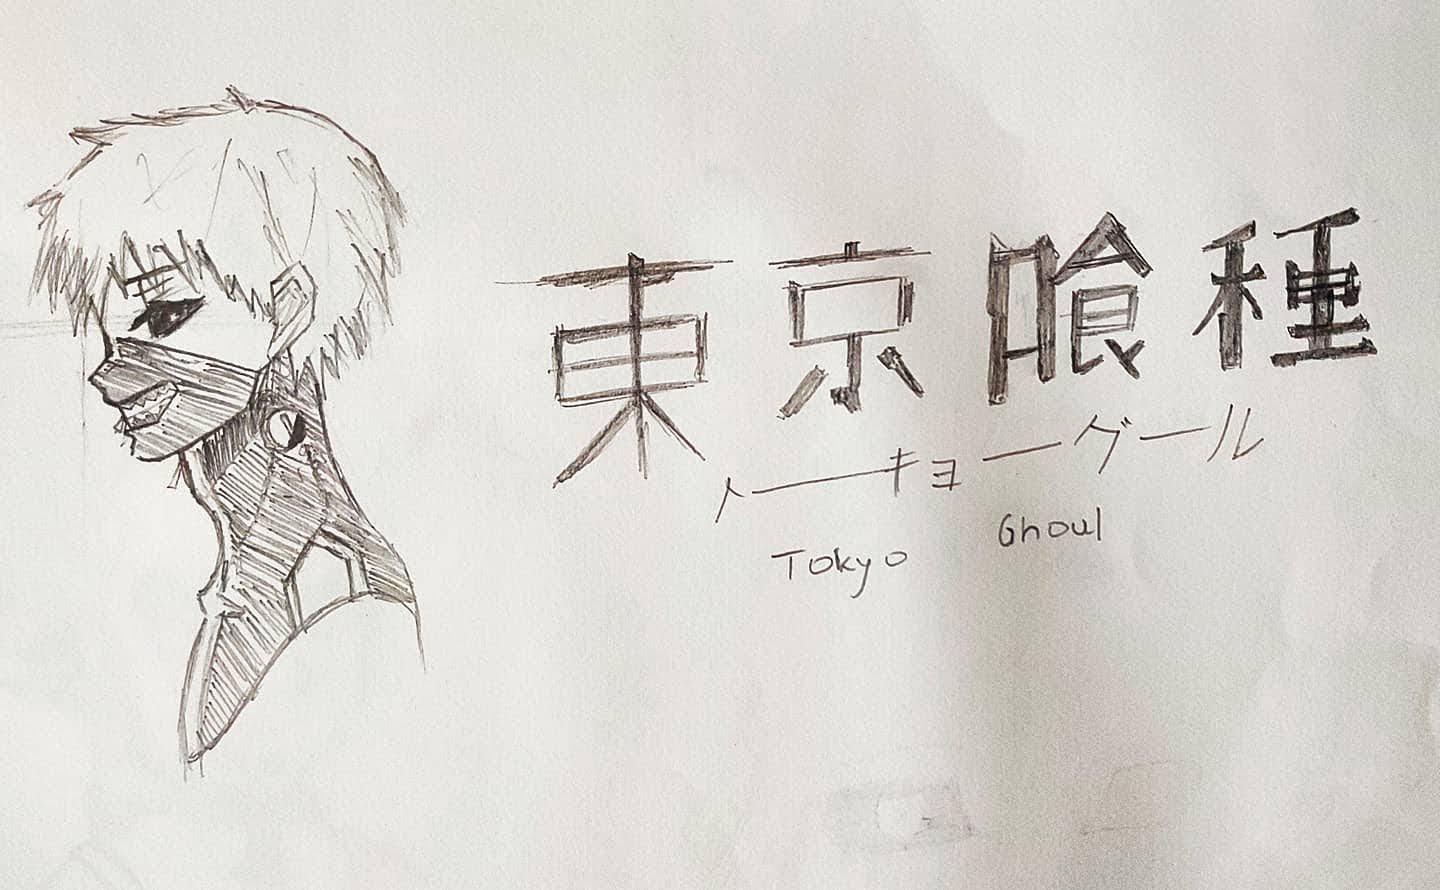 東京喰種
トーキョーグール
Tokyo Ghoul